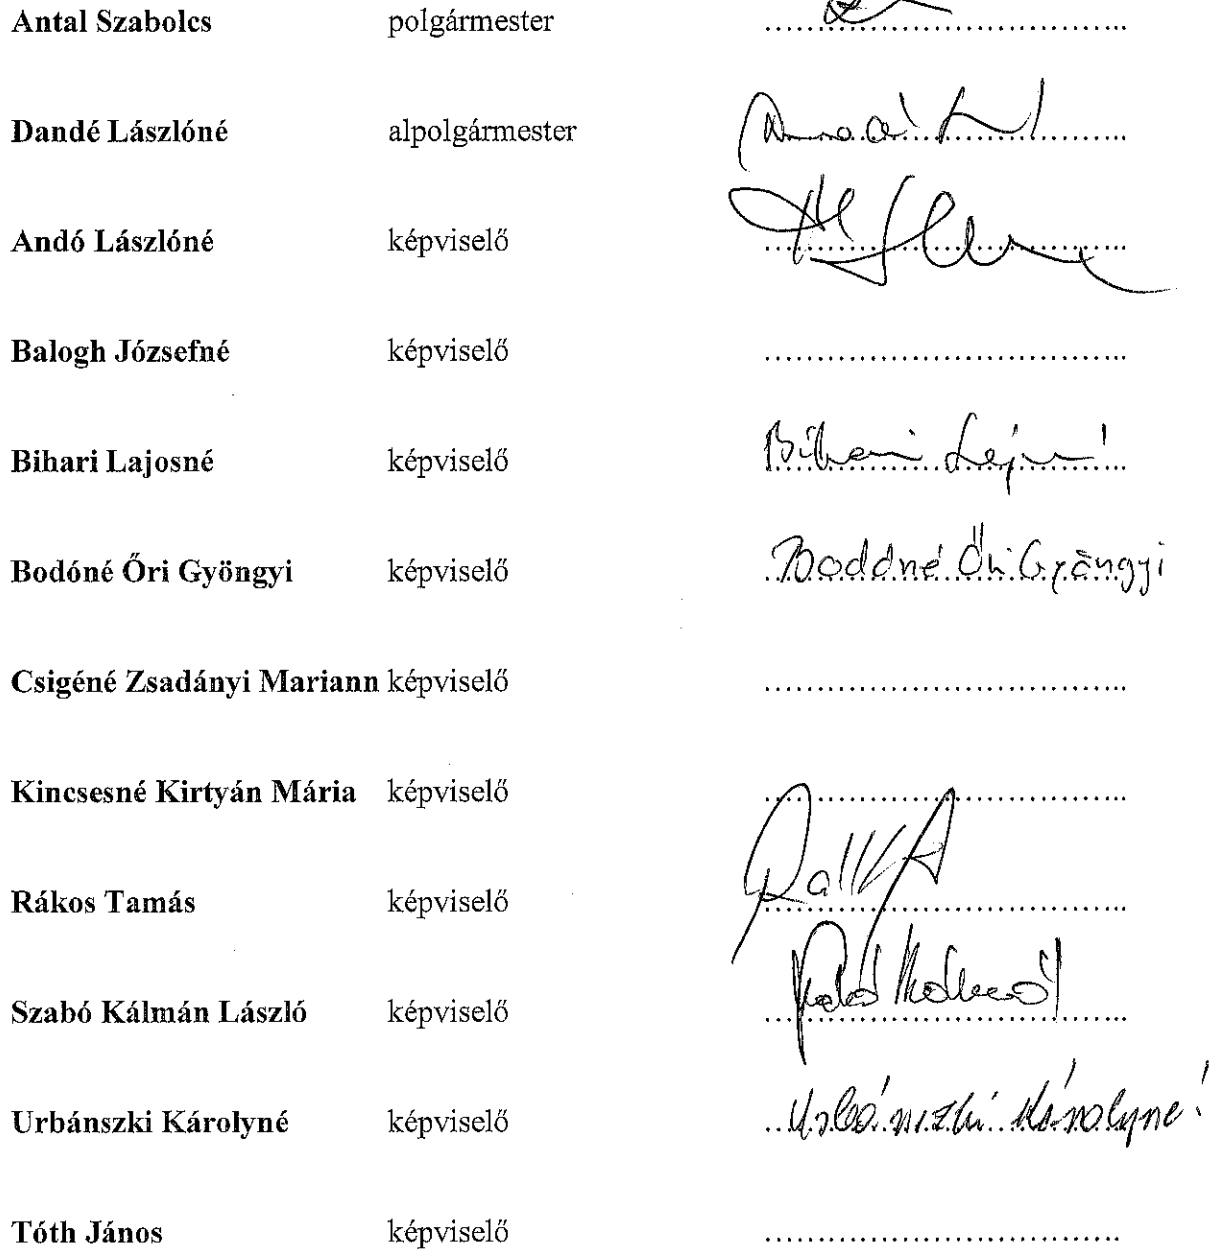 Antal Szabolcs polgármester ......................................
Dandé Lászlóné alpolgármester ......................................
Andó Lászlóné képviselő ......................................
Balogh Józsefné képviselő ......................................
Bihari Lajosné képviselő Bihari Lajosné
Bodóné Őri Gyöngyi képviselő Bodóné Őri Gyöngyi
Csigéné Zsadányi Mariann képviselő ......................................
Kincsesné Kirtyán Mária képviselő ......................................
Rákos Tamás képviselő ......................................
Szabó Kálmán László képviselő Szabó Kálmán
Urbánszki Károlyné képviselő Urbánszki Károlyné
Tóth János képviselő ......................................